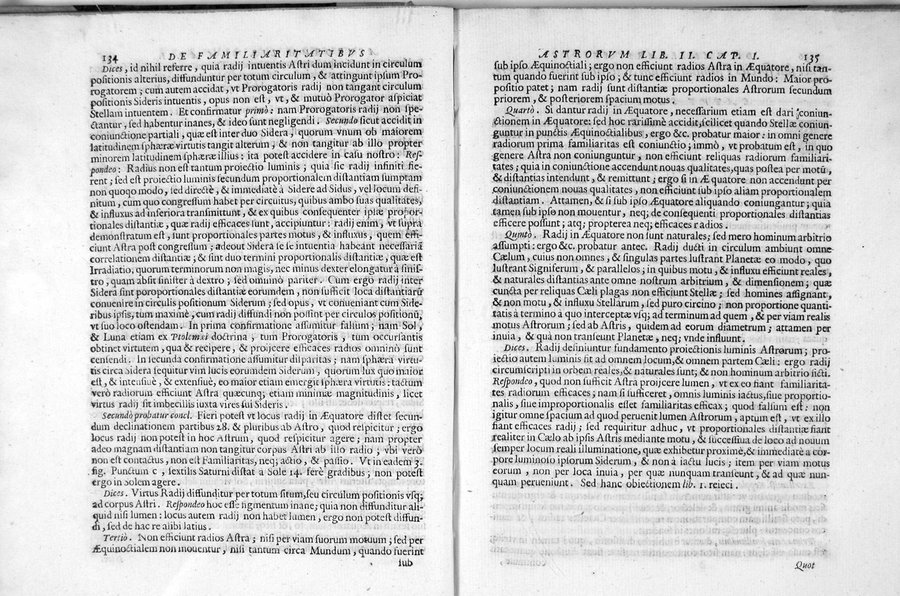 134 DE FAMILIARITATIBVS
Dices, id nihil referre, quia radij intuentis Astri dum incidunt in circulum
positionis alterius, diffunduntur per totum circulum, & attingunt ipsum Pro-
rogatorem; cum autem accidat, vt Prorogatoris radij non tangant circulum
positionis Sideris intuentis, opus non est, vt, & mutuò Prorogator aspiciat
Stellam intuentem. Et confirmatur primò: nam Prorogatoris radij non spe-
ctantur, sed habentur inanes, & ideo sunt negligendi. Secundo sicut accidit in
coniunctione partiali, quæ est inter duo Sidera, quorum vnum ob maiorem
latitudinem sphæræ virtutis tangit alterum, & non tangitur ab illo propter
minorem latitudinem sphæræ illius: ita potest accidere in casu nostro: Res-
pondeo: Radius non est tantum proiectio luminis; quia sic radij infiniti fie-
rent; sed est proiectio luminis secundum proportionalem distantiam sumptam
non quoqo modo, sed directè, & immediatè à Sidere ad Sidus, vel locum defi-
nitum, cum quo congressum habet per circuitus, quibus ambo suas qualitates,
& influxus ad inferiora transmittunt, & ex quibus consequenter ipsæ propor-
tionales distantiæ, quæ radij efficaces sunt, accipiuntur: radij enim, vt supra
demonstratum est, sunt proportionales partes motus, & influxus, quem effi-
ciunt Astra post congressum; adeout Sidera se se intuentia habeant necessariã
correlationem distantiæ; & sint duo termini proportionalis distantiæ, quæ est
Irradiatio, quorum terminorum non magis, nec minus dexter elongatur à sinis-
tro, quam absit sinister à dextro, sed omninò pariter. Cum ergo radij inter
Sidera sint poroportionales distantiæ eorundem, non sufficit loca distantiarũ
conuenire in circulis positionum Siderum; sed opus, vt conueniant cum Side-
ribus ipsis, tum maximè, cum radij diffundi non possint per circulos positionũ,
vt suo loco ostendam. In prima confirmatione assumitur falsum; nam Sol,
& Luna etiam ex Ptolemæi doctrina, tum Prorogatoris, tum occursantis
obtinet virtutem, qua & recipere, & projcere efficaces radios omninò sunt
censendi. In secunda confirmatione assumitur disparitas; nam sphæra virtu-
tis circa Sidera sequitur vim lucis eorumdem Siderum, quorum lux quo maior
est, & intensiuè, & extensiuè, eo maior etiam emergit sphæra virtutis: tactum
verò radiorum efficiunt Astra quæcunq; etiam minimæ magnitudinis, licet
virtus radij sit imbecillis iuxta vires sui Sideris.
Secundò probatur concl. Fieri potest vt locus radij in Æquatore distet secun-
dum declinationem partibus 28. & pluribus ab Astro, quod respicitur; ergo
locus radij non potest in hoc Astrum, quod respicitur agere; nam propter
adeo magnam distantiam non tangitur corpus Astri ab illo radio; vbi verò
non est contactus, non est Familiaritas, neq; actio, & passio. Vt in eadem 3.
fig. Punctum c, sextilis Saturni distat à Sole 14. ferè gradibus; non potest
ergo in Solem agere.
Dices. Virtus Radij diffunditur per totum situm, seu circulum positionis vsq;
ad corpus Astri. Respondeo hoc esse figmentum inane; quia non diffunditur ali-
quid nisi lumen: locus autem radij non habet lumen, ergo non potest diffun-
di, sed de hac re alibi latius.
Tertiò. Non efficiunt radios Astra; nisi per viam suorum motuum; sed per
Æquinoctialem non mouentur, nisi tantum circa Mundum, quando fuerint
sub
ASTRORVM LIB. II. CAP. I. 135
sub ipso Æquinoctiali; ergo non efficiunt radios Astra in Æquatore, nisi tan-
tum quando fuerint sub ipso; & tunc efficiunt radios in Mundo: Maior pro-
positio patet; nam radij sunt distantiæ proportionales Astrorum secundum
priorem, & posteriorem spacium motus.
Quartò. Si dantur radij in Æquatore, necessarium etiam est dari coniun-
ctionem in Æquatore: sed hoc rarissimè accidit, scilicet quando Stellæ coniun-
guntur in punctis Æquinoctialibus, ergo &c. probatur maior: in omni genere
radiorum prima familiaritas est coniunctio; immò, vt probatum est, in quo
genere Astra non coniunguntur, non efficiunt reliquas radiorum familiari-
tates; quia in coniunctione accendunt nouas qualitates, quas postea per motũ,
& distantias intendunt, & remittunt; ergo si in Æquatore non accendunt per
coniunctionem nouas qualitates, non efficiunt sub ipso aliam proportionalem
distantiam. Attamen, & si sub ipso Æquatore aliquando coniungantur; quia
tamen sub ipso non mouentur, neq; de consequenti proportionales distantias
efficere possunt; atq; propterea neq; efficaces radios.
Quintò. Radij in Æquatore non sunt naturales; sed mero hominum arbitrio
assumpti: ergo &c. probatur antec. Radij ducti in circulum ambiunt omne
Cælum, cuius non omnes, & singulas partes lustrant Planetæ eo modo, quo
lustrant Signiferum, & parallelos; in quibus motu, & influxu efficiunt reales,
& naturales distantias ante omne nostrum arbitrium, & dimensionem; quæ
cuncta per reliquas Cæli plagas non efficiunt Stellæ; sed homines assignant,
& non motu, & influxu Stellarum, sed puro circino; non proportione quanti-
tatis à termino à quo interceptæ vsq; ad terminum ad quem, & per viam realis
motus Astrorum; sed ab Astris, quidem ad eorum diametrum; attamen per
inuia, & quà non transeunt Planetæ, neq; vnde influunt.
Dices. Radij definiuntur fundamento proiectionis luminis Astrorum; pro-
iectio autem luminis fit ad omnem locum, & omnem partem Cæli: ergo radij
circumscripti in orbem reales, & naturales sunt; & non hominum arbitrio ficti.
Respondeo, quod non sufficit Astra projcere lumen, vt ex eo fiant familiarita-
tes radiorum efficaces; nam si sufficeret, omnis luminis iactus, siue proportio-
nalis, siue improportionalis esset familiaritas efficax; quod falsum est: non
igitur omne spacium ad quod peruenit lumen Astrorum, aptum est, vt ex illo
fiant efficaces radij; sed requiritur adhuc, vt proportionales distantiæ fiant
realiter in Cælo ab ipsis Astris mediante motu, & successiua de loco ad nouum
semper locum reali illuminatione, quæ exhibetur proximè, & immediatè a cor-
pore luminoso ipsorum Siderum, & non à iactu lucis; item per viam motus
eorum, non per loca inuia, per quæ nunquam transeunt, & ad quæ nun-
quam perueniunt. Sed hanc obiectionem lib. 1. reieci.
Quot